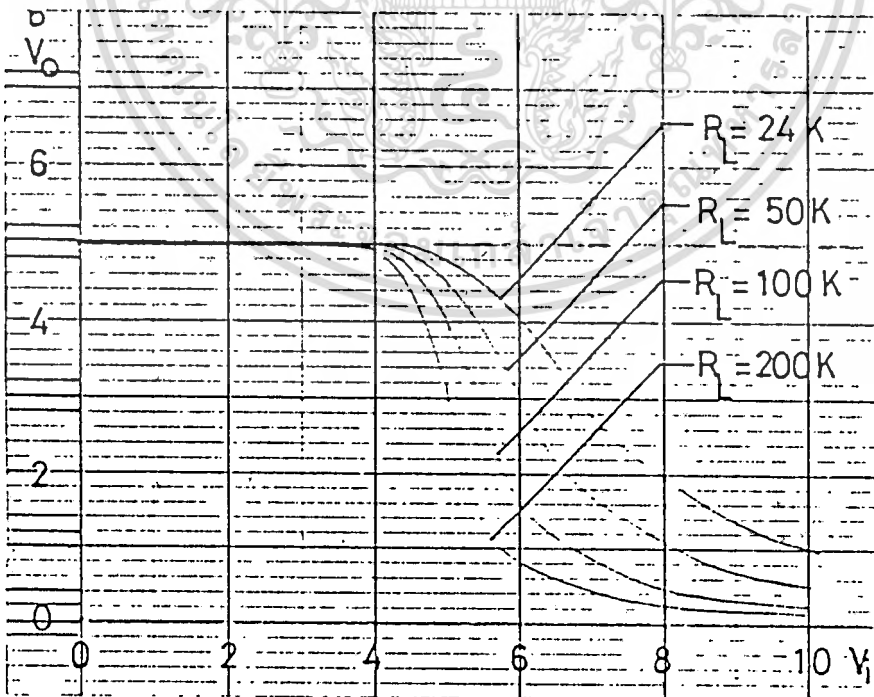 V_O
6
R_L = 24 K
R_L = 50 K
4
R_L = 100 K
R_L = 200 K
2
0
0 2 4 6 8 10 V_I